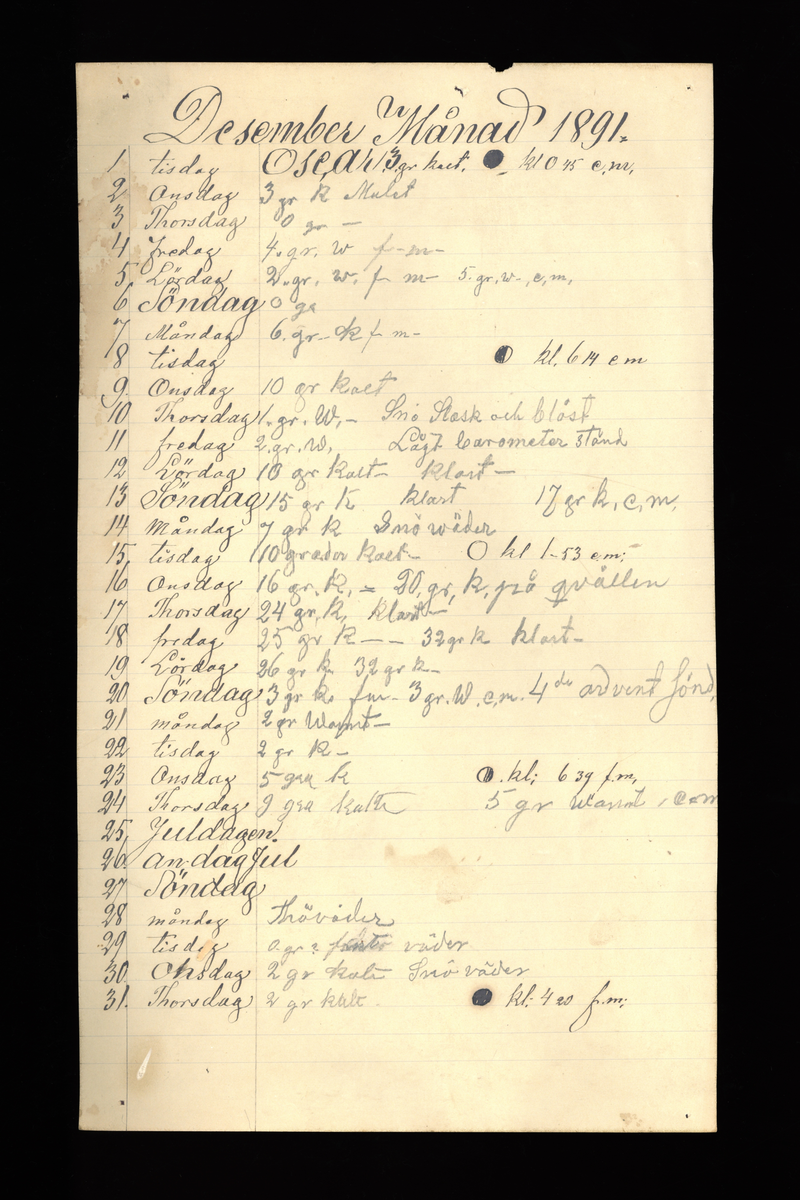 Desember Månad 1891.
1 tisdag Oscar 13 gr kalt. kl 0 45 e,m,
2 Onsdag 3 gr k Mulet
3 Thorsdag 0 gr —
4 fredag 4. gr. w f-m-
5 Lördag 2. gr. w. f m- 5. gr. w-, e, m,
6 Söndag 0 gr
7 Måndag 6. gr- k f m-
8 tisdag kl. 6 14 e m
9. Onsdag 10 gr kalt
10 Thorsdag 1. gr. W, - Snö Slask och blåst
11 fredag 2. gr. w, Lågt barometer stånd
12 Lördag 10 gr kalt- klart -
13 Söndag 15 gr k klart 17 gr k, e, m,
14 Måndag 7 gr k Snö wäder
15, tisdag 10 grader kalt- kl 1-53 e m;
16 Onsdag 16 gr. k, = 20, gr, k, på qvällen
17 Thorsdag 24 gr, k, klart-
18 fredag 25 gr k - - 32 gr k klart-
19 Lördag 26 gr k 32 gr k-
20 Söndag 3 gr k. fm- 3 gr. W. e, m. 4 de advent Sönd,
21 måndag 2 gr Warmt-
22 tisdag 2 gr k -
23 Onsdag 5 gra k kl; 6 39 f. m,
24 Thorsdag 9 gra kalt 5 gr warmt, e m
25, Juldagen.
26. an. dag Jul
27 Söndag
28 måndag Thöväder
29 tisdag 0. gr väder
30. Onsdag 2 gr kalt Snö väder
31. Thorsdag 2 gr kalt. kl; 4 20 f. m;